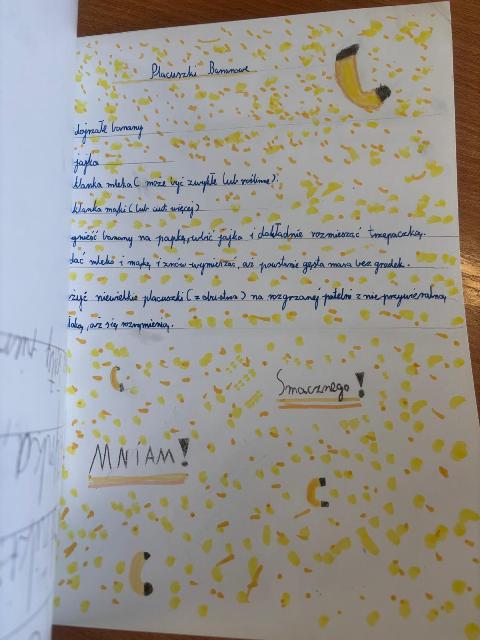 Placuszki Bananowe
dojrzałe banany
jajka
klanka mleka (może być zwykłe lub roślinne).
klanka mąki (lub ciut więcej)
gnieść banany na papkę, wbić jajka i dokładnie rozmieszać trzepaczką.
dać mleko i mąkę i znów wymieszać, aż powstanie gęsta masa bez grudek.
żyć niewielkie placuszki (z obu stron) na rozgrzanej patelni z nie przywieralną
łoką, aż się rozrumienią.
Smacznego!
MNIAM!